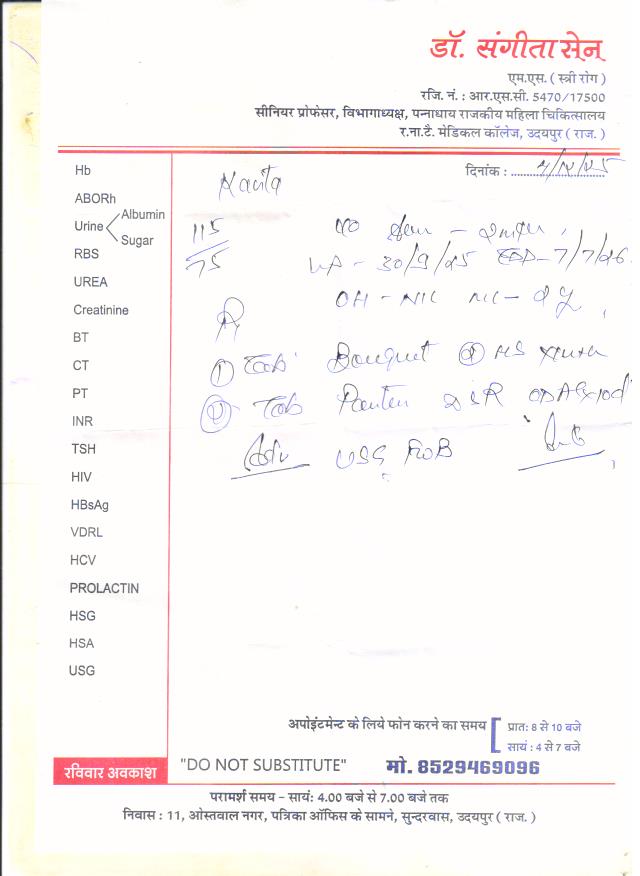 डॉ. संगीता सेन
एम.एस. ( स्त्री रोग )
रजि. नं. : आर.एस.सी. 5470/17500
सीनियर प्रोफेसर, विभागाध्यक्ष, पन्नाधाय राजकीय महिला चिकित्सालय
र.ना.टै. मेडिकल कॉलेज, उदयपुर ( राज. )
दिनांक :
Hb
ABORh
Urine Albumin
Sugar
RBS
UREA
Creatinine
BT
CT
PT
INR
TSH
HIV
HBsAg
VDRL
HCV
PROLACTIN
HSG
HSA
USG
Kavita
115
75
30/9/25 EDD - 7/7/26
OH - NIL
① Tab
② Tab
Adv USG
अपोइंटमेन्ट के लिये फोन करने का समय
प्रात: 8 से 10 बजे
सायं : 4 से 7 बजे
रविवार अवकाश
"DO NOT SUBSTITUTE"
मो. 8529469096
परामर्श समय – सायं: 4.00 बजे से 7.00 बजे तक
निवास : 11, ओस्तवाल नगर, पत्रिका ऑफिस के सामने, सुन्दरवास, उदयपुर ( राज. )